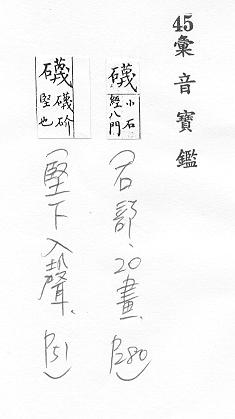 45
彙音寶鑑
礣
小石
經八門
(石部、20畫、P280)
礣
礣砎
堅也
(堅下入聲、P51)